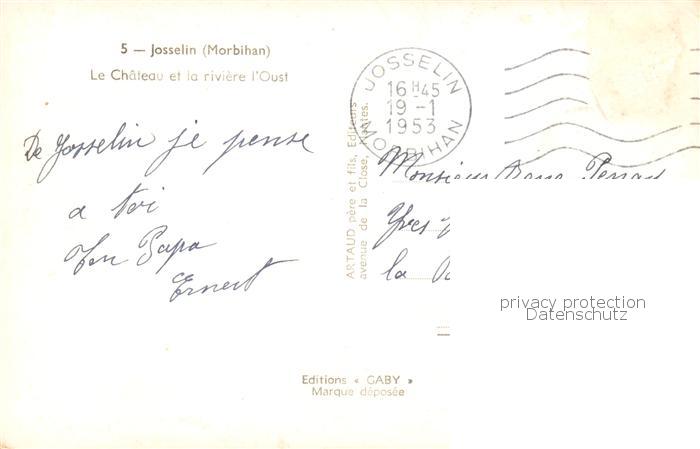 5 — Josselin (Morbihan)
Le Château et la rivière l'Oust
De Josselin je pense
a toi
Ton Papa
Ernest
JOSSELIN
16 H45
19 -1
1953
MORBIHAN
ARTAUD père et fils, Editeurs
avenue de la Close, Nantes.
Monsieur
Yves
la
privacy protection
Datenschutz
Editions « GABY »
Marque déposée